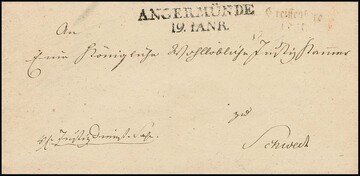 ANGERMÜNDE
19. IANR.
An
Eine Königliche Wohllöbliche Justiz Kammer
zu
Schwedt